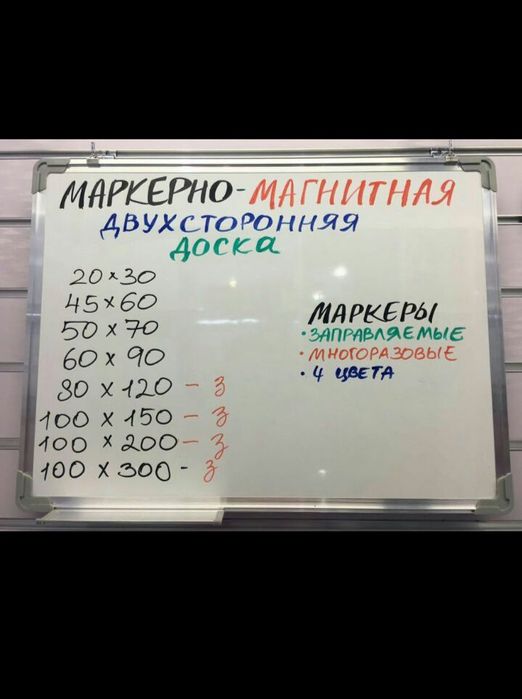 МАРКЕРНО-МАГНИТНАЯ
ДВУХСТОРОННЯЯ
ДОСКА
20 x 30
45 x 60
50 x 70
60 x 90
80 x 120 - з
100 x 150 - з
100 x 200 - з
100 x 300 - з
МАРКЕРЫ
• ЗАПРАВЛЯЕМЫЕ
• МНОГОРАЗОВЫЕ
• 4 ЦВЕТА